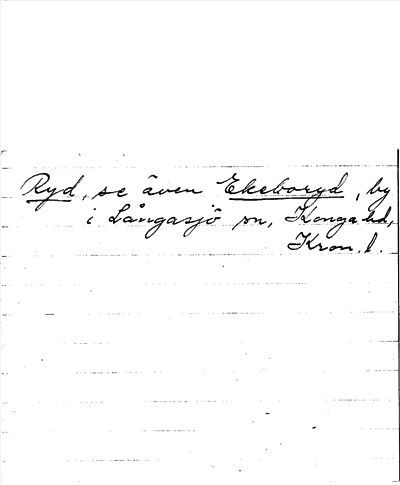 Ryd, se även Ekeboryd, by
i Långasjö sn, Konga hd,
Kron. l.